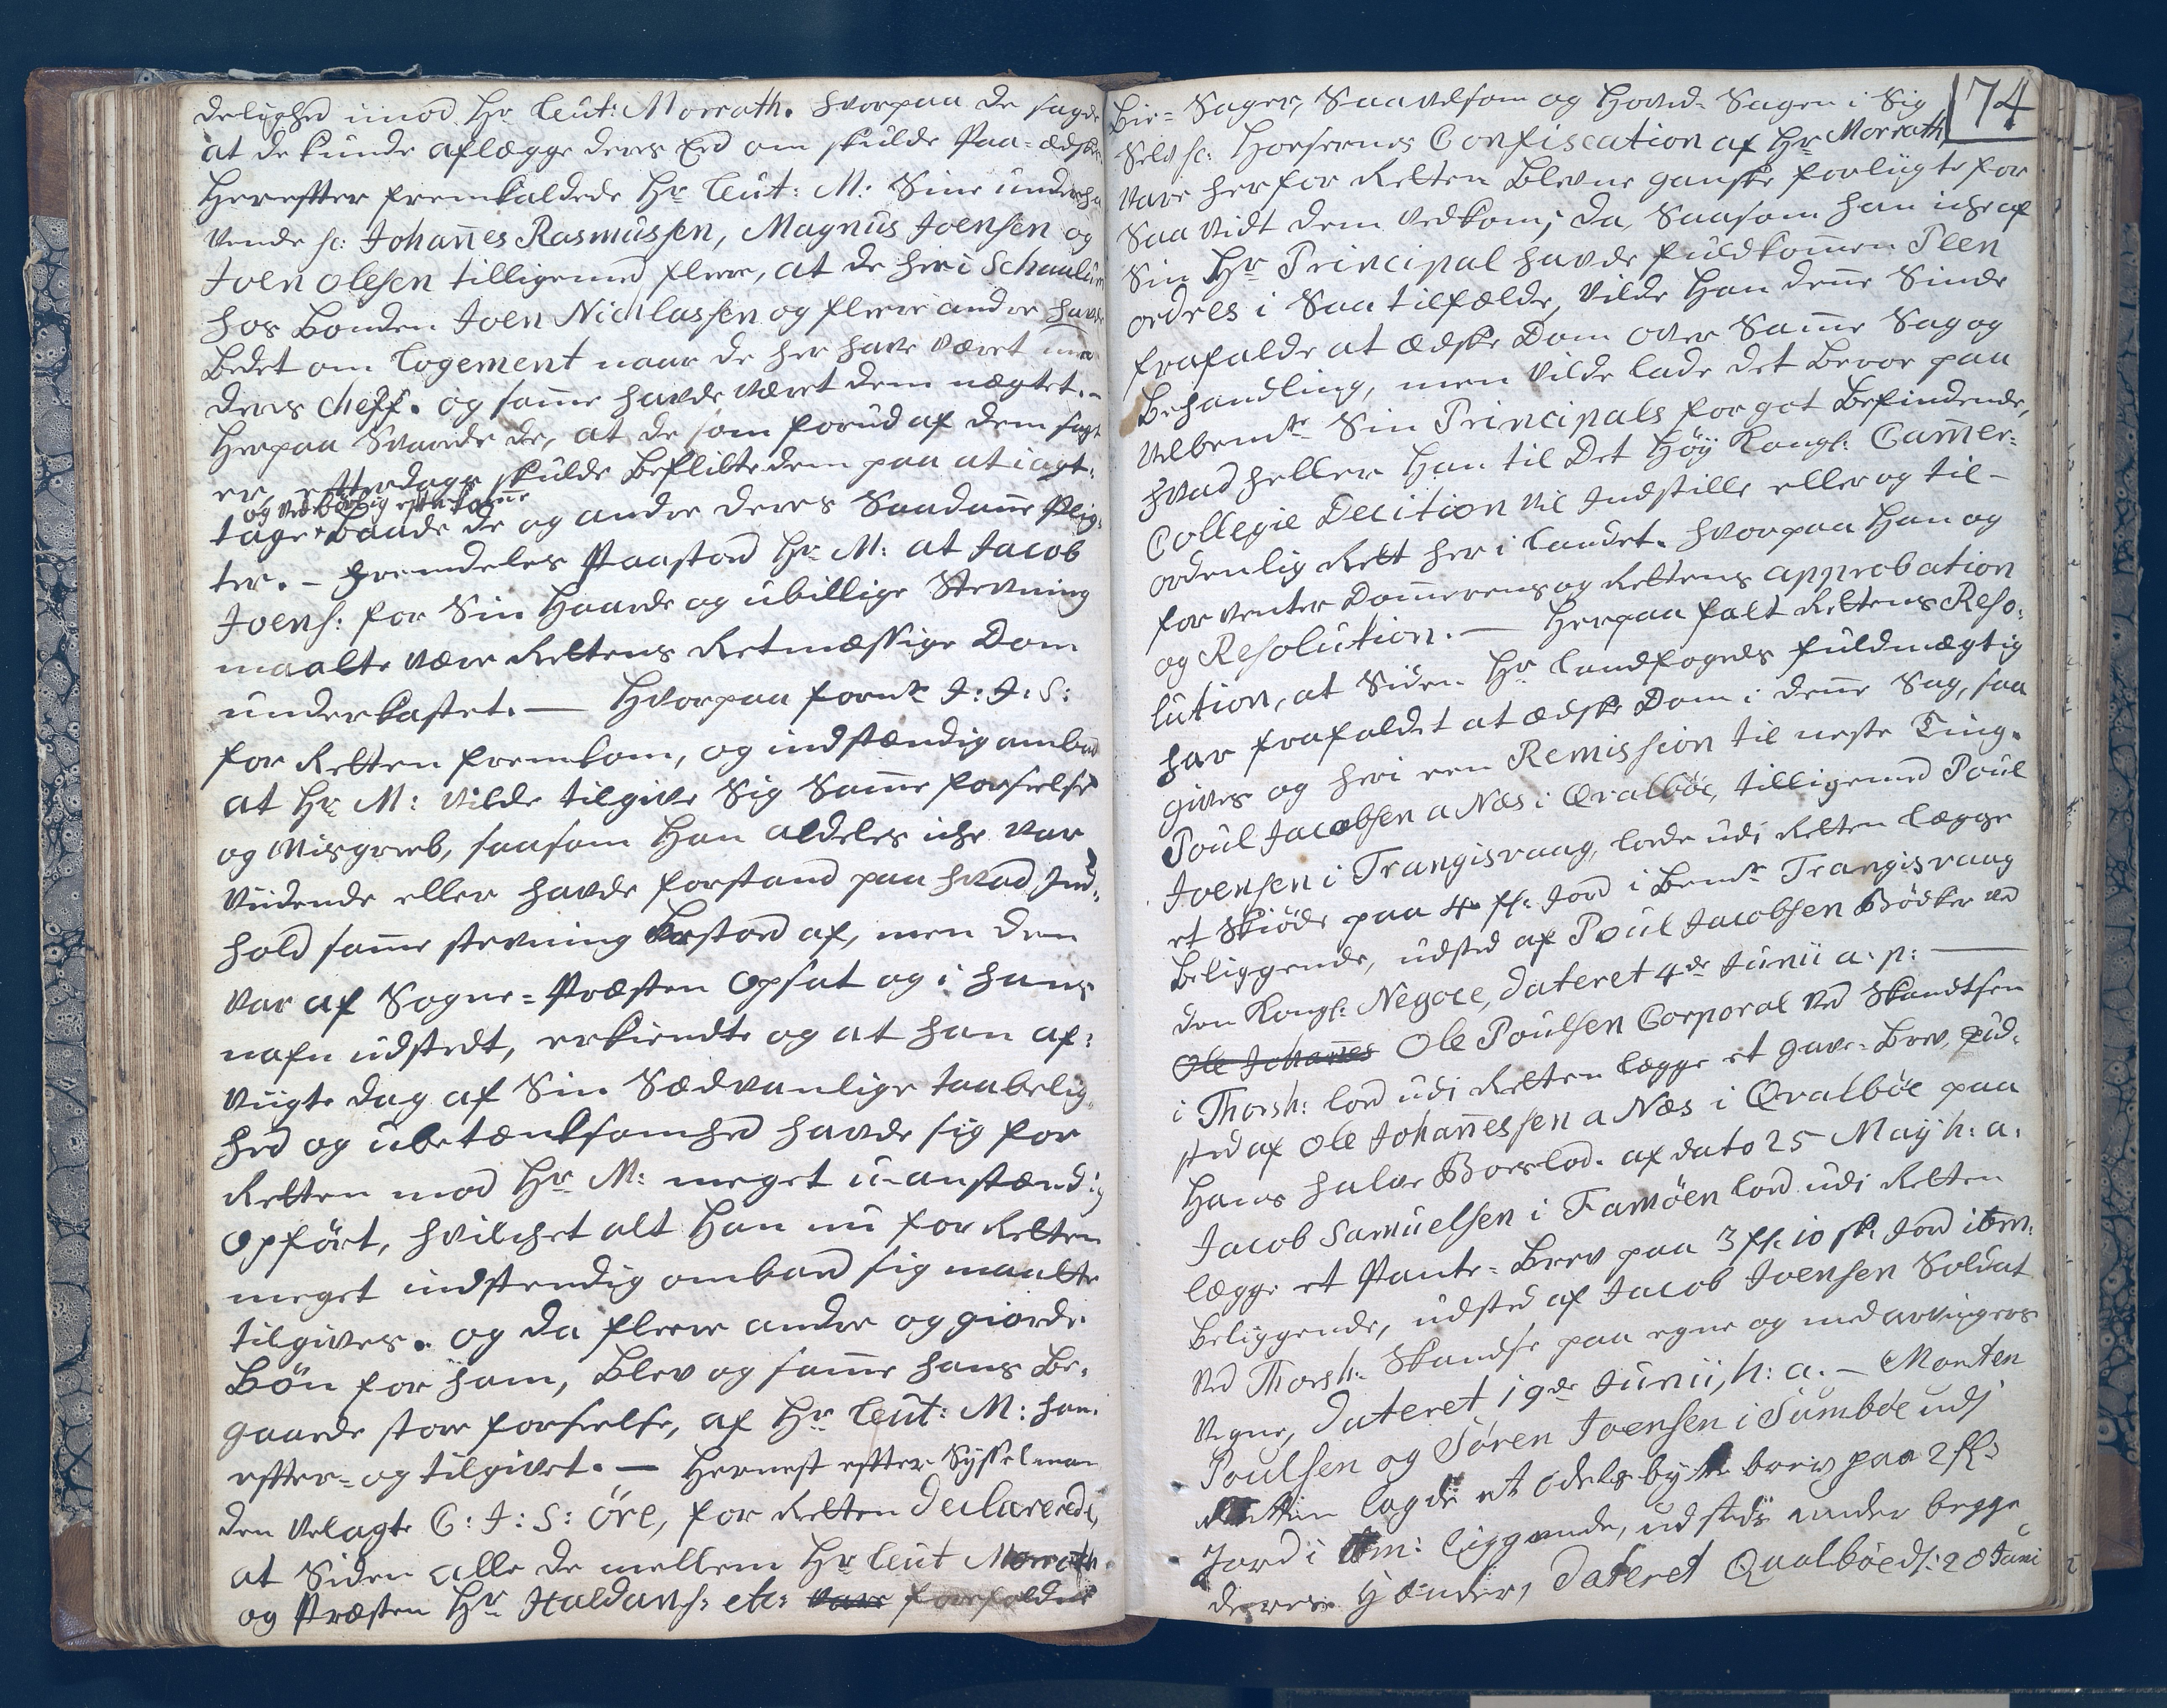 delighed imod Hr Leut: Morrath. hvorpaa de sagde
at de kunde aflægge deres Eed om skulde Paa-ædskes.
Herefter fremkaldede Hr Leut: M: Sine underha
vende sc: Johan̄es Rasmussen, Magnus Joensen og
Joen Olesen tilligemed flere, at de her i
hos Bonden Joen Nichlassen og flere andre havde
Bedet om Logement naar de her have været med
deres Cheff. og sam̄e havde været dem nægtet.-
Herpaa Svarede de, at de som forud af dem sagt
er, efterdags skulde beflitte dem paa at iagt:
og ved børlig efterkom̄e
tage Baade de og andre deres Saadan̄e Plig:
ter. - Fremdeles Paastod Hr M: at Jacob
Joens: for Sin Haarde og ubillige Stevning
maatte være Rettens Retmæssige Dom
underkastet. — Hvorpaa forn̄te J: J: S:
for Retten fremkom, og indstændig ombad
at Hr M: vilde tilgive Sig Sam̄e forseelse
og Misgreeb, saasom Han aldeles iche var
Viidende eller havde forstand paa hvad Ind:
hold sam̄e stevning Bestod af, men den
var af Sogne=Præsten Opsat og i hans
nafn udstedt, erkiendte og at han af:
vigte dag af Sin Sædvanlige taabelig
hed og ubetænksomhed havde sig for
Retten mod Hr M: meget u-anstændig
Opført, hvilchet alt Han nu for Retten
meget indstendig ombad sig maatte
tilgives. og da flere andre og giorde
Bøn for ham, Blev og sam̄e hans Be:
gaaede store forseelse, af Hr Leut: M: ham
efter- og tilgivet. — Hernest efter Sysselman
den Velagte C: J: S: Øre, for Retten Declarerede,
at Siden alle de mellem Hr Leut Morrath
og Præsten Hr Haldans: etc: vare forefaldne
74
Bie=Sager, Saavelsom og Hoved-Sagen i Sig
Selv sc: Horsernes Confiscation af Hr Morrath
vare her for Retten Blevne ganske forligte for
Saavidt dem vedkom; da, Saasom han iche af
Sin Hr Principal havde fuldkom̄en Plen
ordres i Saa tilfælde, vilde Han den̄e Sinde
frafalde at ædske Dom over Sam̄e Sag og
Behandling, men vilde lade det Beroe paa
Velbem̄te Sin Principals for got Befindende,
hvad heller Han til Det Høy Kongl: Cam̄er-
Collegie Decition vil Indstille eller og til-
ordenlig Rett her i Landet. hvorpaa Han og
forventer Dom̄erens og Rettens approbation
og Resolution. — Herpaa falt Rettens Reso:
lution, at Siden Hr Landfogeds fuldmægtig
har frafaldet at ædske Dom i den̄e Sag, saa
gives og heri een Remission til neste Ting.
Poul Jacobsen a Næs i Qvalbøe, tilligemed Poul
Joensen i Trangisvaag, lode udi Retten lægge
et Skiøde paa 4 fl: Jord i Bem̄te Trangisvaag
Beliggende, udsted af Poul Jacobsen Bødker ved
den Kongl: Negoce, dateret 4de Junii a: p: —
Ole Johan̄es Ole Poulsen Corporal ved Skandtsen
i Thorsh: lod udi Retten lægge et gave-Brev, ud-
sted af Ole Johan̄essen a Næs i Qvalbøe paa
Hans halve Boeslod. af dato 25 Maÿ h: a:
Jacob Samuelsen i Famøen lod udi Retten
lægge et Pante=Brev paa 3 fl: 10 sk: Jord ibm:
beliggende, udsted af Jacob Joensen Soldat
ved Thorsh: Skandse paa egne og medarvingers
vegne, dateret 19de Junii, h: a. - Morten
Poulsen og Søren Joensen i Sumbøe udj
Retten lagde et odels bytte brev paa 2 fl:
Jord i ibm: liggende, udstedt under begge
deres Hænder, dateret Qualbøe d: 20 Juni